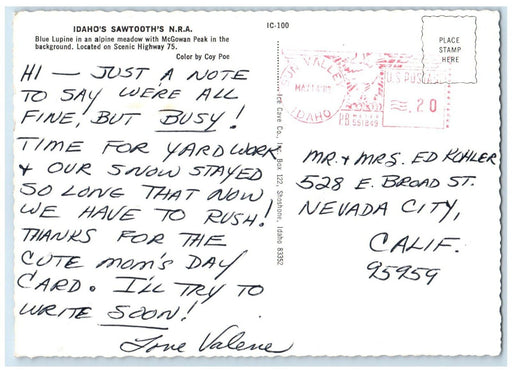 IDAHO'S SAWTOOTH'S N.R.A.
Blue Lupine in an alpine meadow with McGowan Peak in the
background. Located on Scenic Highway 75.
Color by Coy Poe
IC-100
HI — JUST A NOTE
TO SAY WE'RE ALL
FINE, BUT BUSY!
TIME FOR YARDWORK
+ OUR SNOW STAYED
SO LONG THAT NOW
WE HAVE TO RUSH!
THANKS FOR THE
CUTE MOM'S DAY
CARD. I'LL TRY TO
WRITE SOON!
Love Valene
Ice Cave Co., Inc. Box 122, Shoshone, Idaho 83352
SUN VALLEY
IDAHO
U.S. POSTAGE
.20
PB
551849
PLACE
STAMP
HERE
MR. + MRS. ED KOHLER
528 E. BROAD ST.
NEVADA CITY,
CALIF.
95959